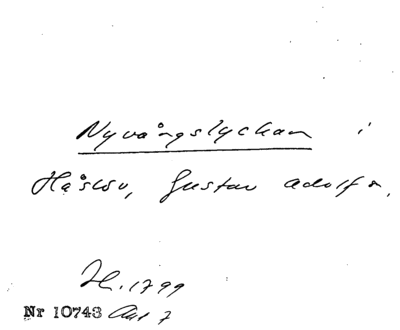 Nyvångslyckan i
Håslöv, Gustav Adolf s.
H. 1799
Nr 10743 Aut 7